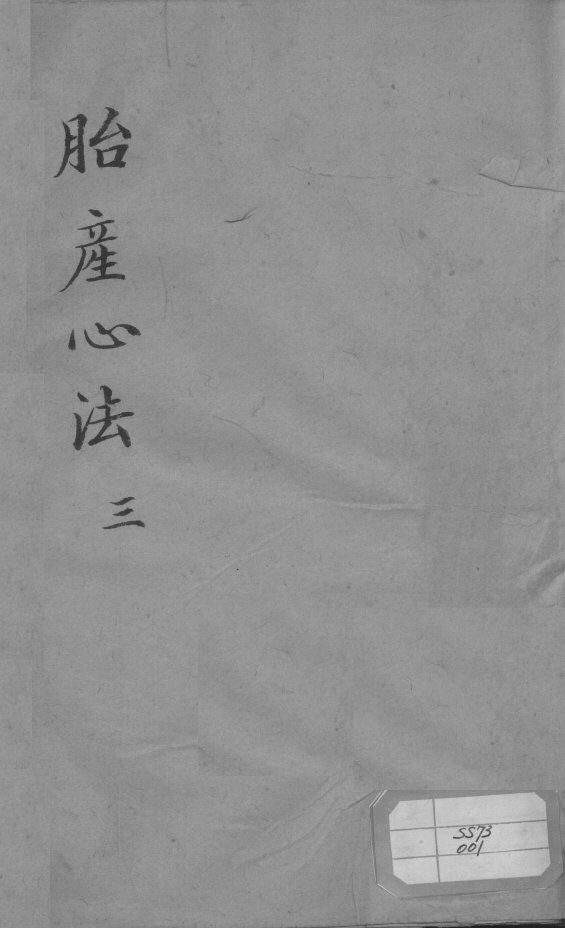 胎產心法
三
SS73
001